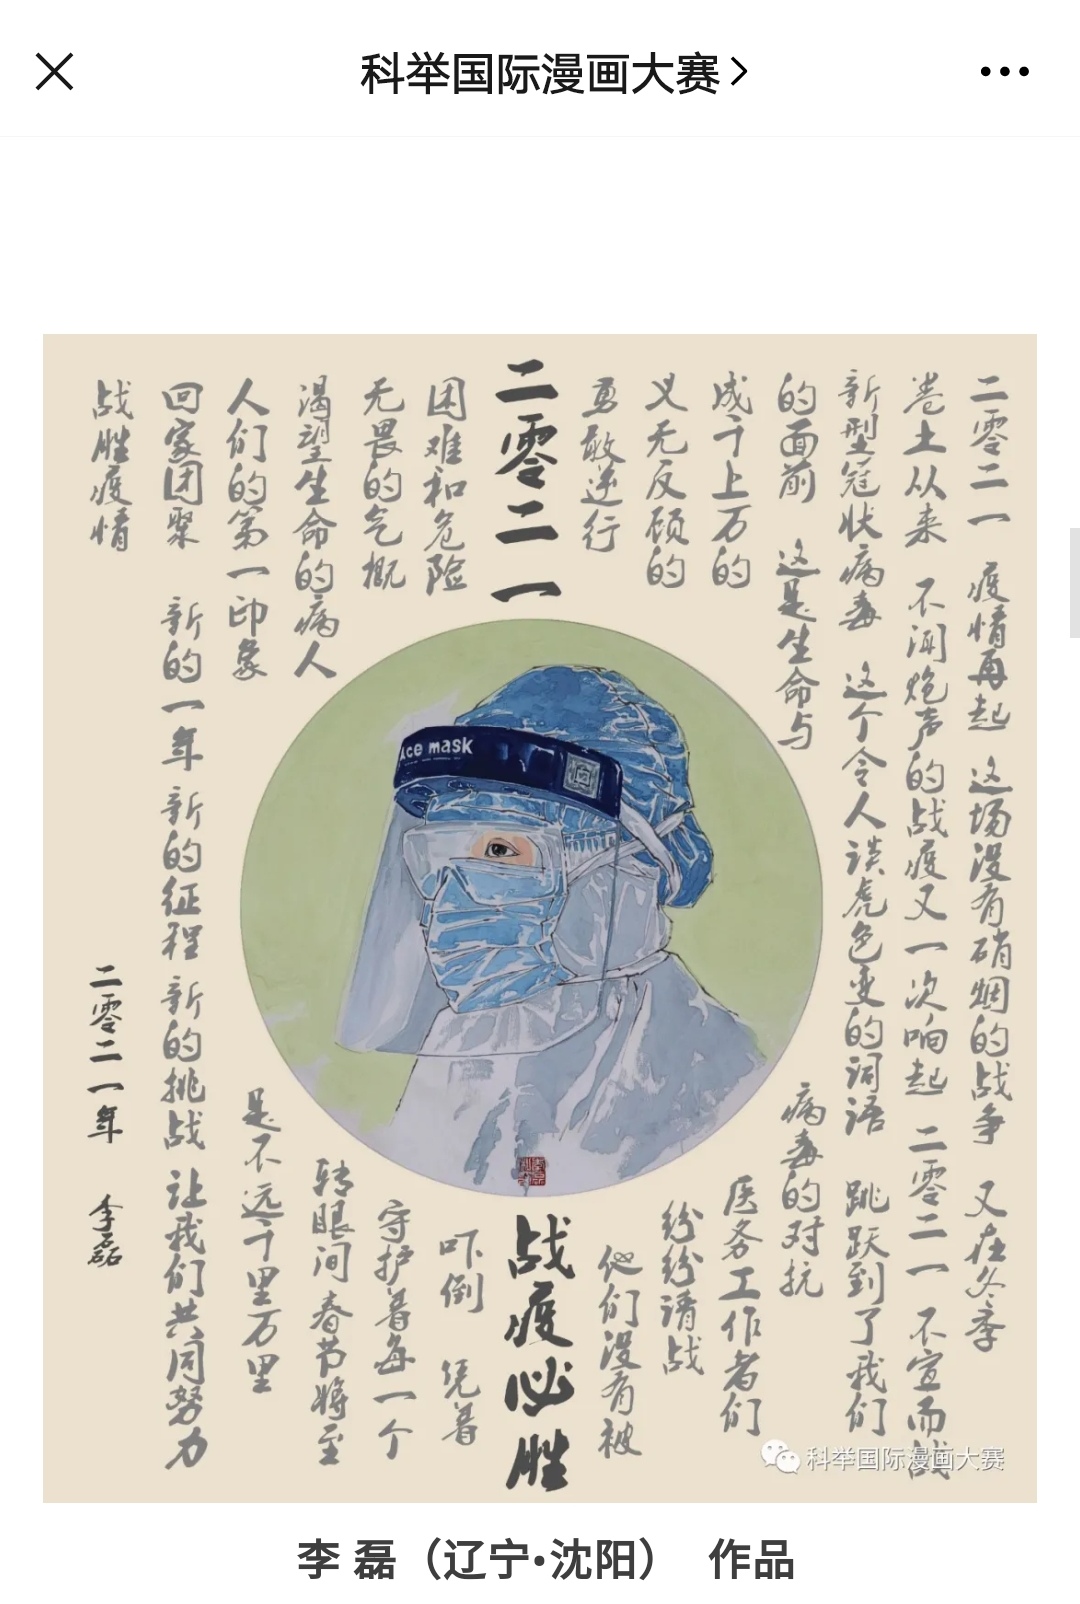 科举国际漫画大赛
二零二一 疫情再起 这场没有硝烟的战争 又在冬季
卷土从来 不闻炮声的战疫又一次响起 二零二一 不宣而战
新型冠状病毒 这个令人谈虎色变的词语 跳跃到了我们
的面前 这是生命与
病毒的对抗
成千上万的
医务工作者们
义无反顾的
纷纷请战
勇敢逆行
他们没有被
二零二一
战疫必胜
困难和危险
吓倒 凭着
无畏的气概
守护着每一个
渴望生命的病人
转眼间春节将至
人们的第一印象
是不远千里万里
回家团聚 新的一年 新的征程 新的挑战 让我们共同努力
战胜疫情
二零二一年 李磊
ace mask
科举国际漫画大赛
李 磊（辽宁·沈阳） 作品